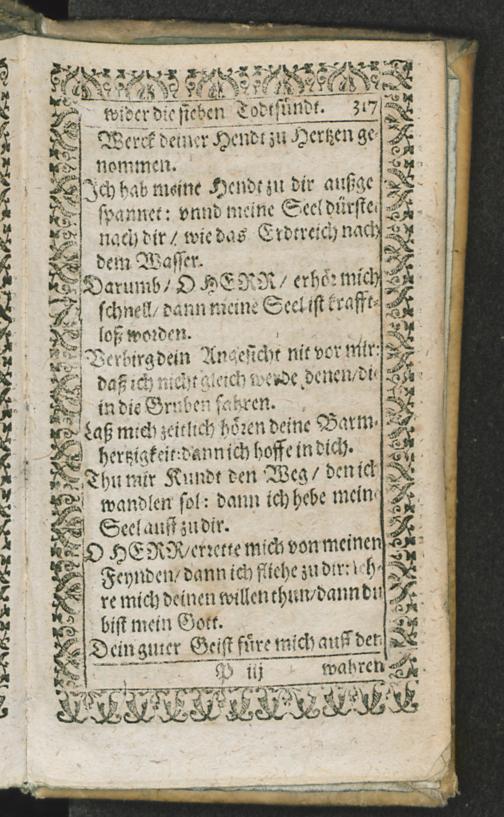 wider die sieben Todtsündt. 317
Werck deiner Hendt zu Hertzen ge
nommen.
Ich hab meine Hendt zu dir außge
spannet: vnnd meine Seel dürste
nach dir / wie das Erdtreich nach
dem Wasser.
Darumb / O HERR / erhör mich
schnell / dann meine Seel ist krafft-
loß worden.
Verbirg dein Angesicht nit vor mir:
daß ich nicht gleich werde denen / di
in die Gruben fahren.
Laß mich zeitlich hören deine Barm-
hertzigkeit: dann ich hoffe in dich.
Thu mir Kundt den Weg / den ich
wandlen sol: dann ich hebe mein
Seel auff zu dir.
O HERR / errette mich von meinen
Feynden / dann ich fliehe zu dir: leh-
re mich deinen willen thun / dann du
bist mein Gott.
Dein guter Geist füre mich auff den
P iij wahren